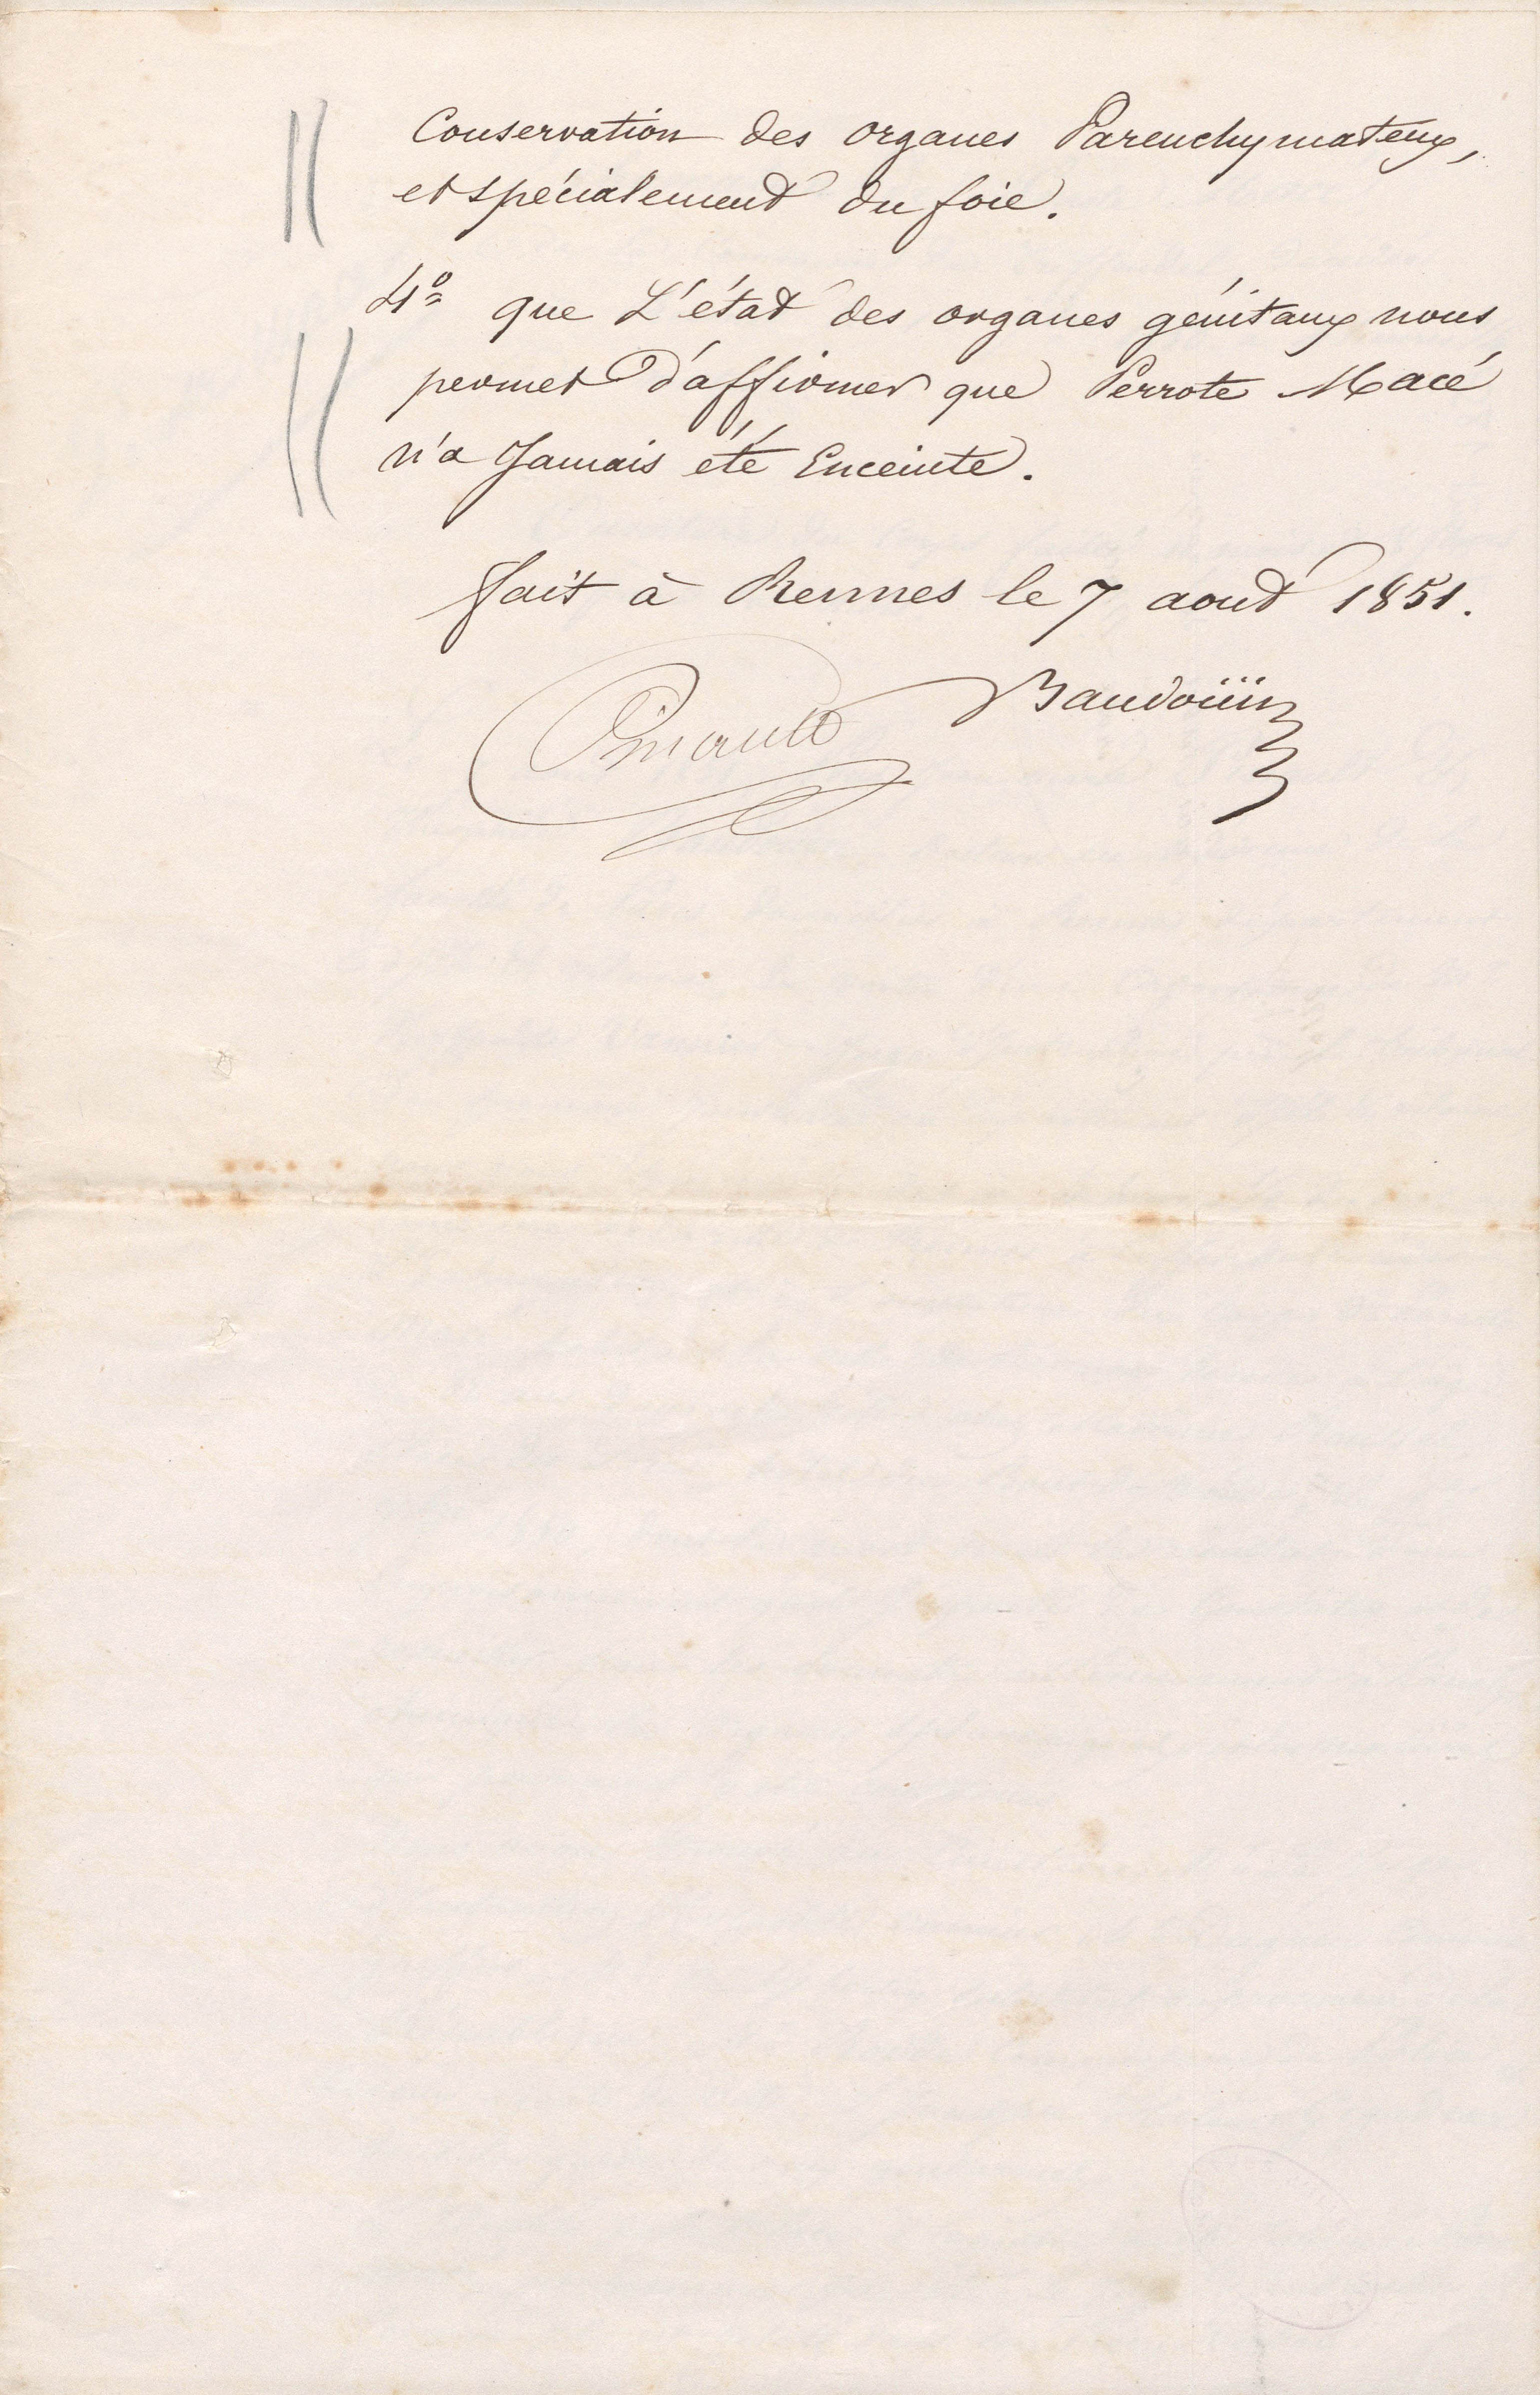 Conservation des organes Parenchymateux,
et spécialement du foie.
4° que L'état des organes génitaux nous
permet d'affirmer que Perrote Macé
n'a Jamais été Enceinte.
fait à Rennes le 7 aout 1851.
Baudoüin
Pinault